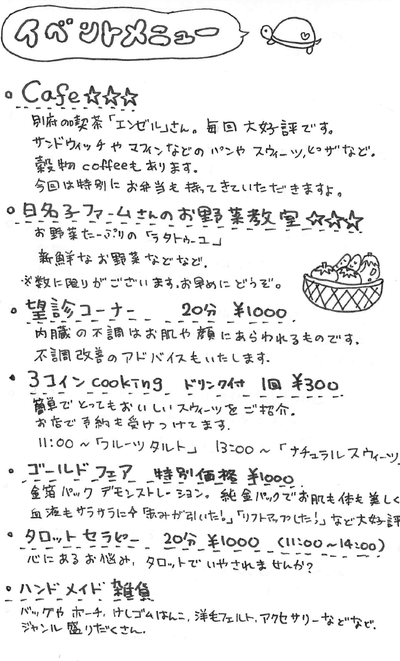 イベントメニュー
・Cafe☆☆☆
別府の喫茶「エンゼル」さん。毎回大好評です。
サンドウィッチやマフィンなどのパンやスウィーツ、ピザなど。
穀物coffeeもあります。
今回は特別にお弁当も持ってきていただきますよ。
・日名子ファームさんのお野菜教室☆☆☆
お野菜たーっぷりの「ラタトゥーユ」
新鮮なお野菜などなど。
※数に限りがございます。お早めにどうぞ。
・望診コーナー 20分 ¥1000
内臓の不調はお肌や顔にあらわれるものです。
不調改善のアドバイスもいたします。
・3コインcooking ドリンク付 1回 ¥300
簡単でとってもおいしいスウィーツをご紹介。
お店で予約も受けつけてます。
11:00〜「フルーツタルト」 13:00〜「ナチュラルスウィーツ」
・ゴールドフェア 特別価格 ¥1000
金箔パック デモンストレーション。純金パックでお肌も体も美しく
血液もサラサラに↑「赤みが引いた!」「リフトアップした!」など大好評
・タロットセラピー 20分 ¥1000 (11:00〜14:00)
心にあるお悩み、タロットでいやされませんか?
・ハンドメイド雑貨
バッグやポーチ、けしゴムはんこ、洋毛フェルト、アクセサリーなどなど。
ジャンル盛りだくさん。